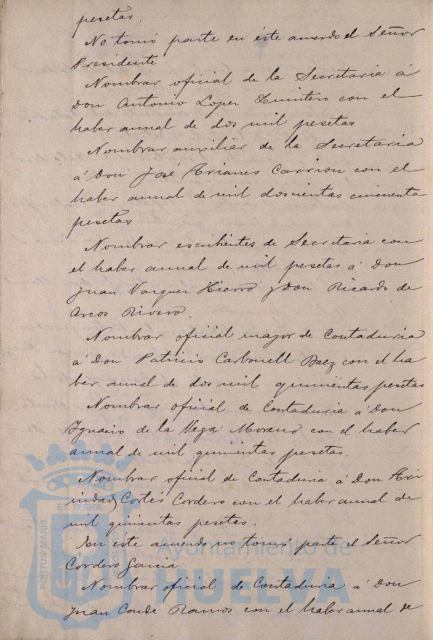 pesetas.
No tomó parte en este acuerdo el Señor
Presidente
Nombrar oficial de la Secretaria á
Don Antonio Lopez Quintero con el
haber anual de dos mil pesetas
Nombrar auxiliar de la Secretaria
á Don José Trianes Carrion con el
haber anual de mil doscientas cincuenta
pesetas
Nombrar escribientes de Secretaria con
el haber anual de mil pesetas á Don
Juan Vazquez Hierro y Don Ricardo de
Arcos Rivero.
Nombrar oficial mayor de Contaduria
á Don Patricio Carbonell Baez con el ha
ber anual de dos mil quinientas pesetas
Nombrar oficial de Contaduria á Don
Ignacio de la Vega Moreno con el haber
anual de mil quinientas pesetas.
Nombrar oficial de Contaduria á Don
Cortés Cordero con el haber anual de
mil quinientas pesetas.
En este acuerdo no tomó parte el Señor
Cordero Garcia
Nombrar oficial de Contaduria á Don
Juan Conde Ramos con el haber anual de
Ayuntamiento de
HUELVA